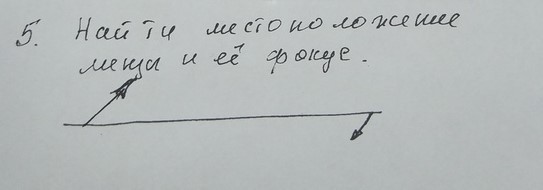 5. Найти местоположение
линзы и её фокус.